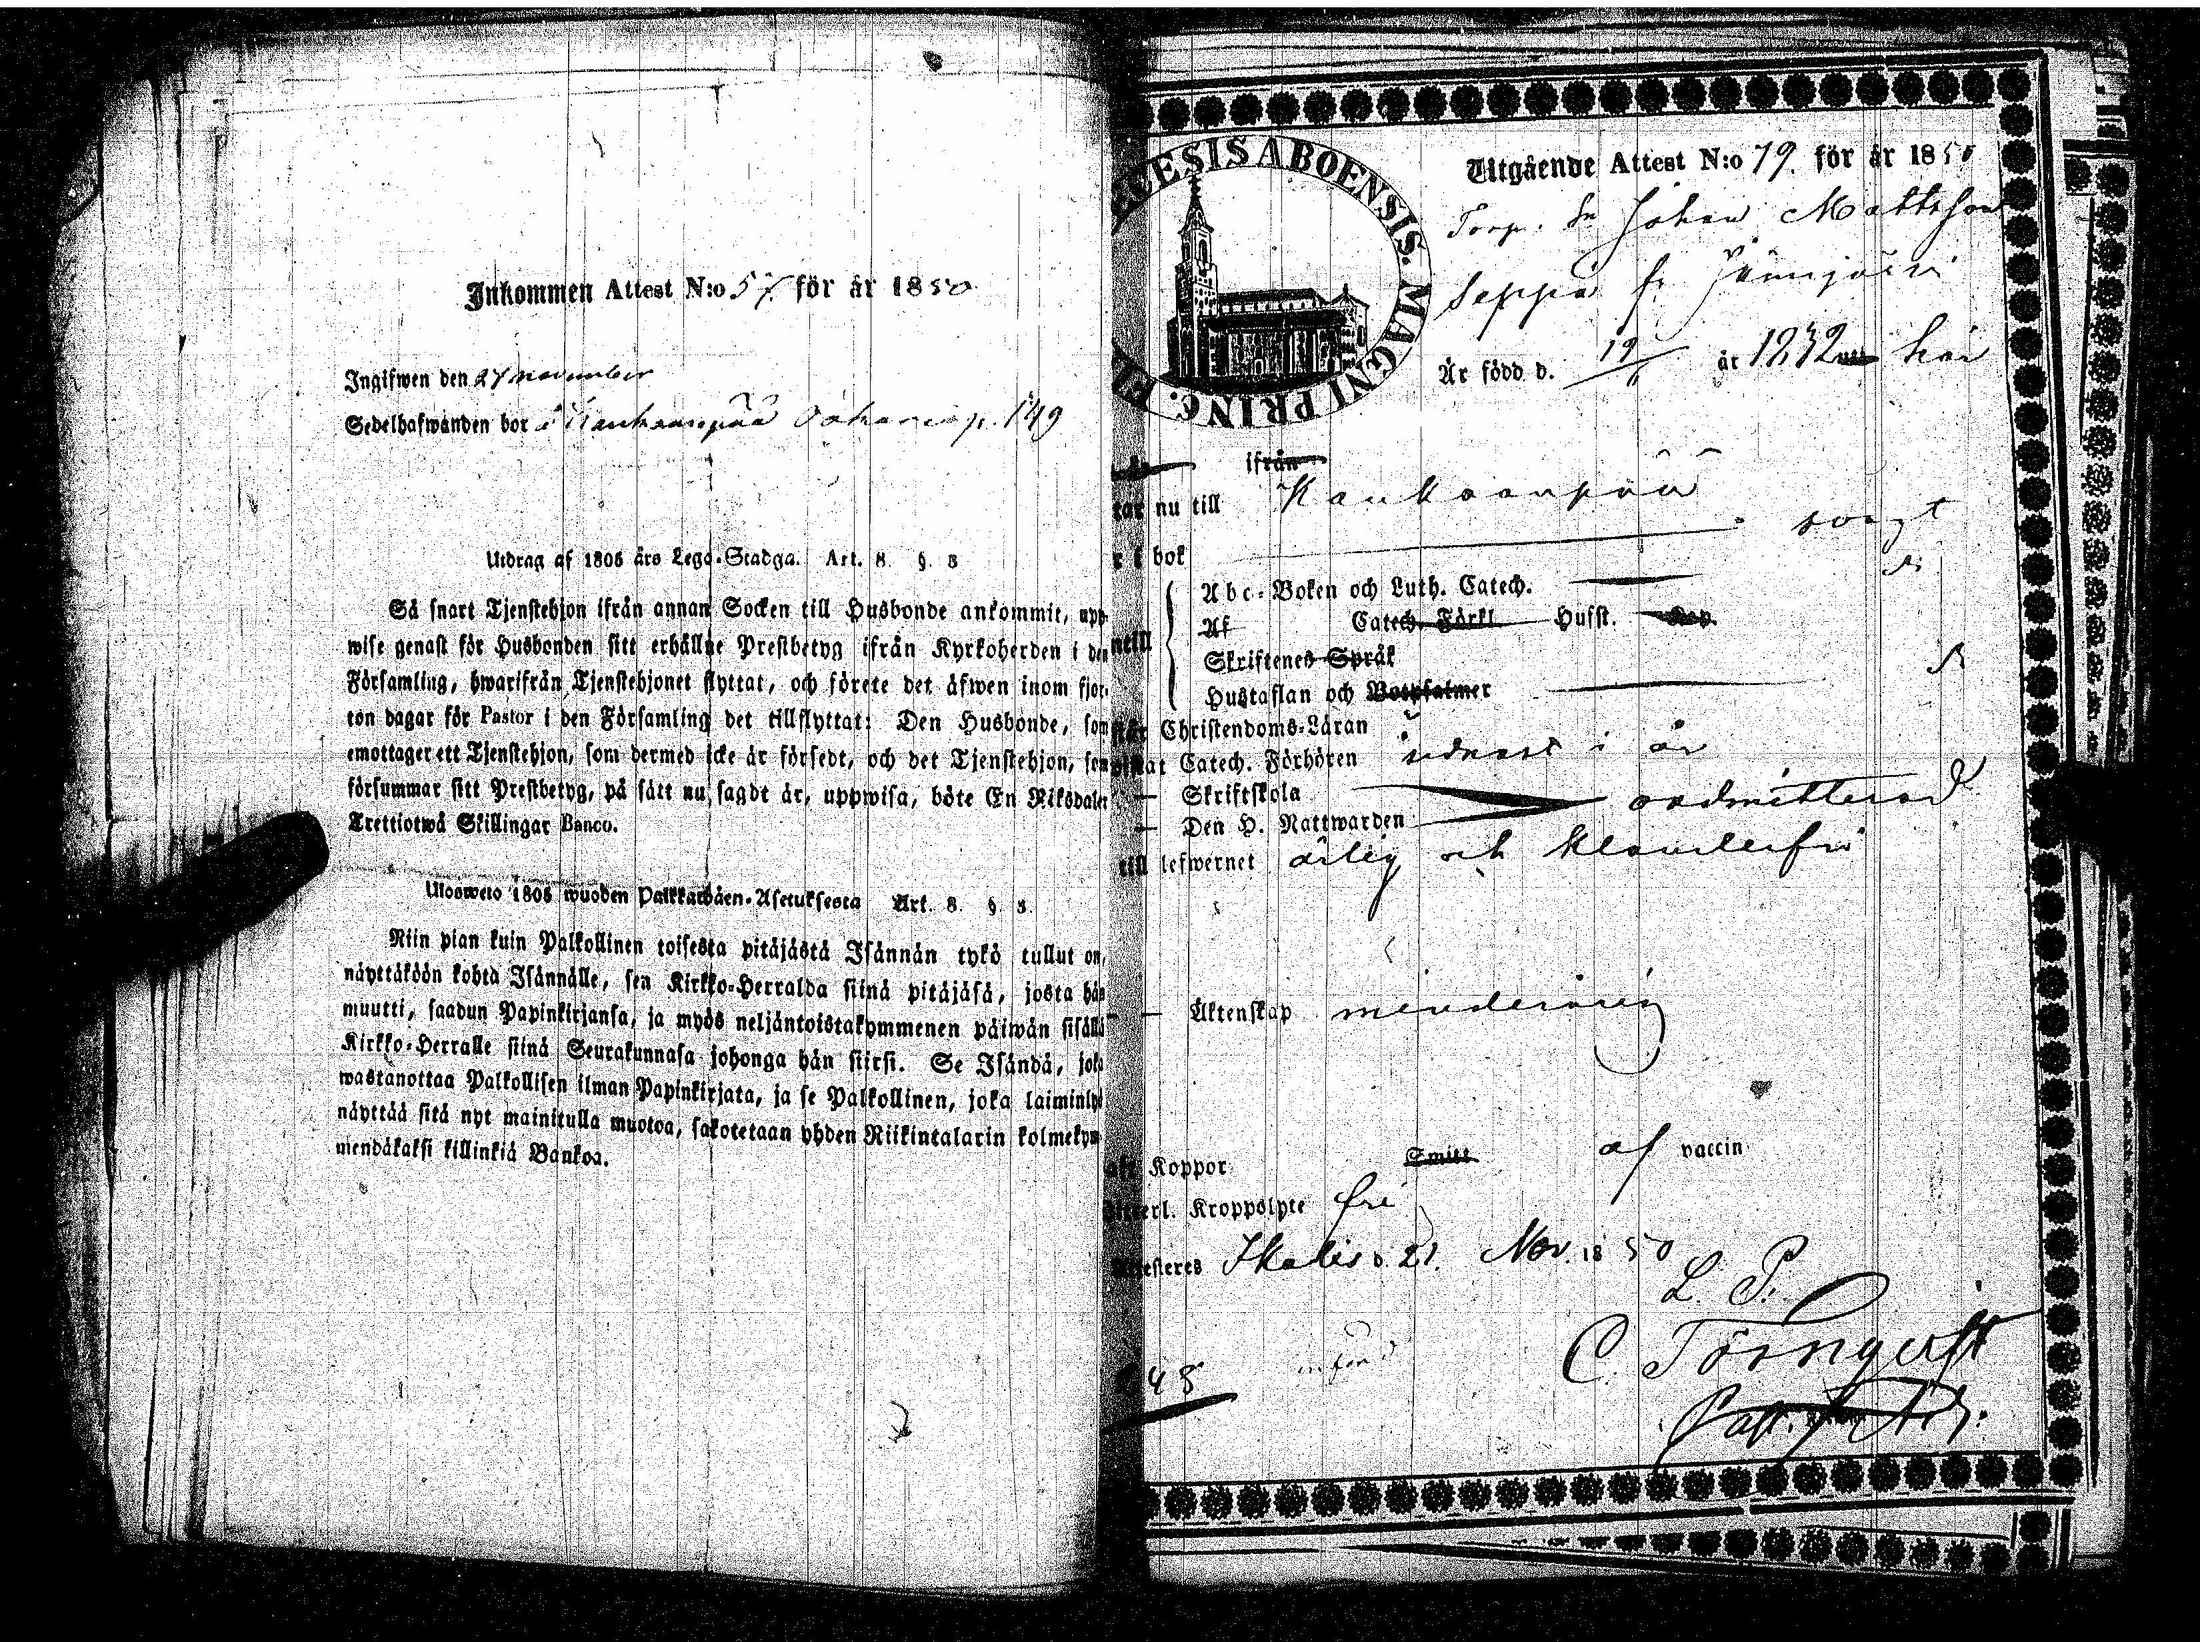 Inkommen Attest N:o 57. för år 1850
Ingifwen den 27 november
Sedelhafwanden bor i Kankaanpää p. 149
Utdrag af 1805 års Lego-Stadga. Art. 8. §. 3
Så snart Tjenstehjon ifrån annan Socken till Husbonde ankommit, upp-
wise genast för Husbonden sitt erhållne Prestbetyg ifrån Kyrkoherden i den
Församling, hwarifrån Tjenstehjonet flyttat, och förete det äfwen inom fjor-
ton dagar för Pastor i den Församling det tillflyttat: Den Husbonde, som
emottager ett Tjenstehjon, som dermed icke är försedt, och det Tjenstehjon, som
försummar sitt Prestbetyg, på sätt nu sagdt är, uppwisa, böte En Riksdaler
Trettiotwå Skillingar Banco.
Ulosweto 1805 wuoden Palkkawäen-Asetuksesta Art. 8. §. 3.
Niin pian kuin Palkollinen toisesta pitäjästä Isännän tykö tullut on,
näyttäköön kohta Isännälle, sen Kirkko-Herralda siinä pitäjäsä, josta hän
muutti, saadun Papinkirjansa, ja myös neljäntoistakymmenen päiwän sisällä
Kirkko-Herralle siinä Seurakunnasa johonga hän siirsi. Se Isändä, joka
wastanottaa Palkollisen ilman Papinkirjata, ja se Palkollinen, joka laiminlyö
näyttää sitä nyt mainitulla muotoa, sakotetaan yhden Riikintalarin kolmekym-
mendäkaksi killinkiä Bankoa.
ECESIS ABOENSIS. MAGNI PRINC. FI
Utgående Attest N:o 79. för år 1850
Torp. Sn Johan Mattsson
Seppä fr. Jämijärvi
Är född d. 19 år 1832 här
ifrån
tar nu till Kankaanpää
r i bok svagt
Abc-Boken och Luth. Catech.
Af Catech. Förkl. Husst.
ntill
Skriftenes Språk
Hustaflan och Botpsalmer
står Christendoms-Läran
wistat Catech. Förhören sednast i år
— Skriftskola
— Den H. Nattwarden oadmitterad
till lefwernet ärlig och klanderfri
— Äktenskap minderårig
aft Koppor Smitt af vaccin
Wetterl. Kroppslyte fri
Attesteres Ikalis d. 21. Nov. 1850
L. P.
C. Törnqvist
48